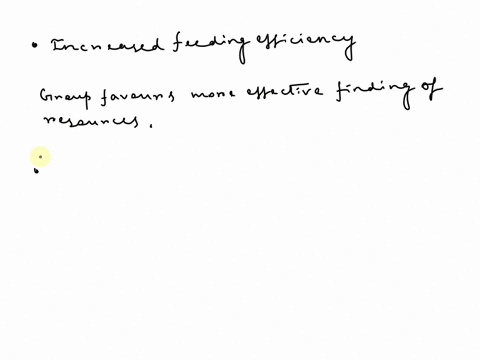 • Increased feeding efficiency
Group favours more effective finding of
resources.
•